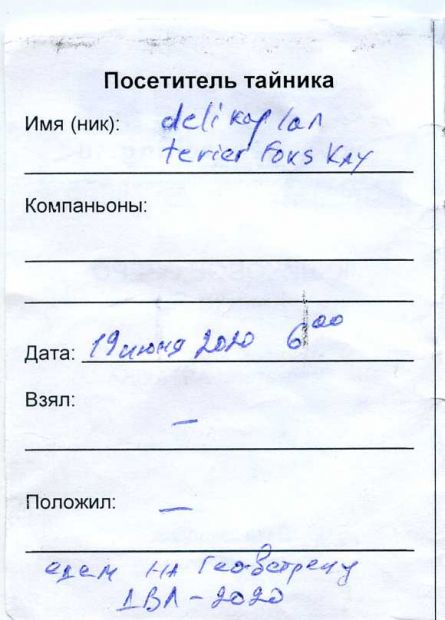 Посетитель тайника
Имя (ник): delikaplan
terier Foks Kay
Компаньоны:
Дата: 19 июня 2020 6⁰⁰
Взял:
—
Положил: —
едем на Геовстречу
ДВЛ - 2020